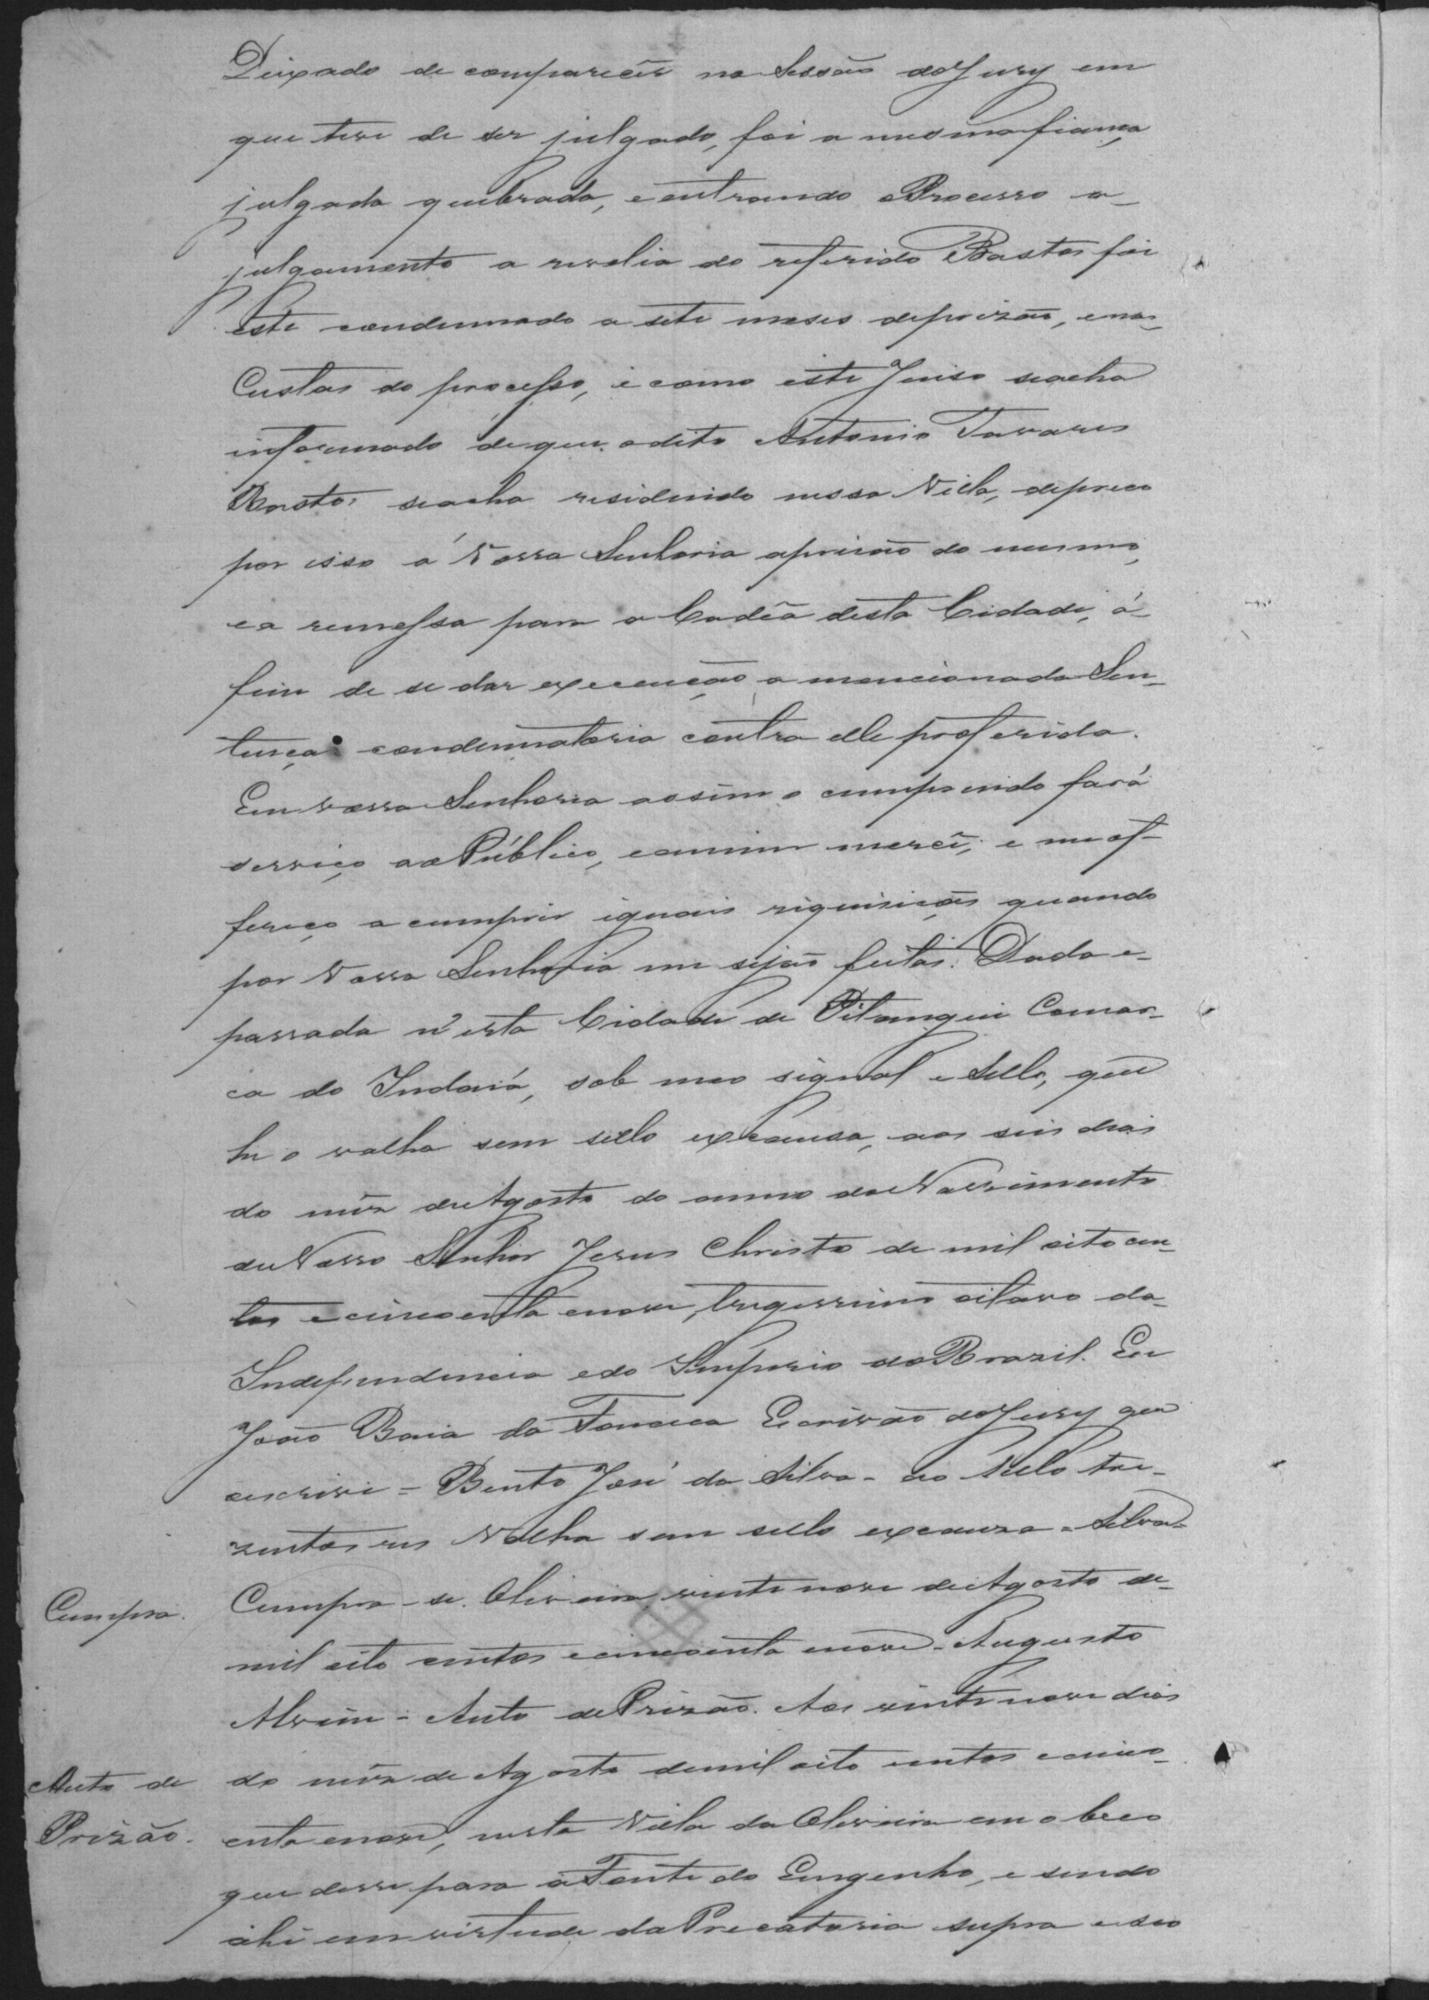 Deixado de comparecêr na Sessão do Jury em
que teve de ser julgado, foi a mesma fiança
julgada quebrada, e entrando o Processo a-
julgamento a revelia do referido Bastos foi
este condemnado a sete meses de prizão, e nas
Custas do processo, e como este Juiso se acha
informado de que o dito Antonio Tavares
Bastos se acha residindo nessa Villa, depreco
por isso á Vossa Senhoria a prisão do mesmo,
e a remessa para a Cadêa desta Cidade, á
fim de se dar execução a mencionada Sen-
tença condemnatoria contra elle proferida.
Em vossa Senhoria assim o cumprindo fará
serviço ao Público, e a mim mercê, e me of-
fereço a cumprir iguais riquisições quando
por Vossa Senhoria me sejão feitas. Dada e-
passada n'esta Cidade de Pitangui Comar-
ca do Indaiá, sob meo signal e Sello, que
he o valha sem sello excausa, aos seis dias
do mêz de Agosto do anno do Nassimento
de Nosso Senhor Jesus Christo de mil oito cen-
tos e cincoenta e nove, trigessimo oitavo da-
Independencia e do Imperio do Brazil. Eu
João Baia da Fonseca Escrivão do Jury que
escrivi = Bento José da Silva - ao Sello tre-
zentos reis Valha sem sello excauza = Silva =
Cumpra.
Cumpra-se. Oliveira, vinte nove de Agosto de-
mil oito centos e cincoenta e nove = Augusto
Alvim = Auto de Prizão. Aos vinte nove dias
Auto de
Prizão.
do mêz de Agosto de mil oito centos e cinco-
enta e nove, nesta Villa da Oliveira em o beco
que desse para a Fonte do Engenho, e sendo
ahi em virtude da Precatoria supra e seo